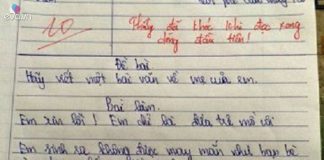 10
Thầy đã khóc khi đọc xong
dòng đầu tiên!
Đề bài
Hãy viết một bài văn về mẹ của em.
Bài làm.
Em xin lỗi! Em chỉ là đứa trẻ mồ côi
Em sinh ra không được may mắn như bạn bè